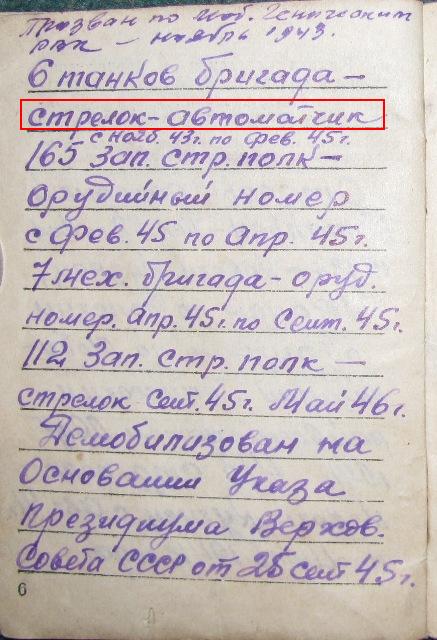 Призван по моб. Геническим
РВК – ноябрь 1943.
6 танков бригада –
стрелок-автоматчик
с нояб. 43г. по фев. 45г.
165 Зап. стр. полк –
орудийный номер
с фев. 45 по апр. 45г.
7 мех. бригада – оруд.
номер. апр. 45г. по Сент. 45г.
112 Зап. стр. полк –
стрелок Сент. 45г. Май 46г.
Демобилизован на
Основании Указа
Президиума Верхов.
Совета СССР от 25 сент 45г.
6